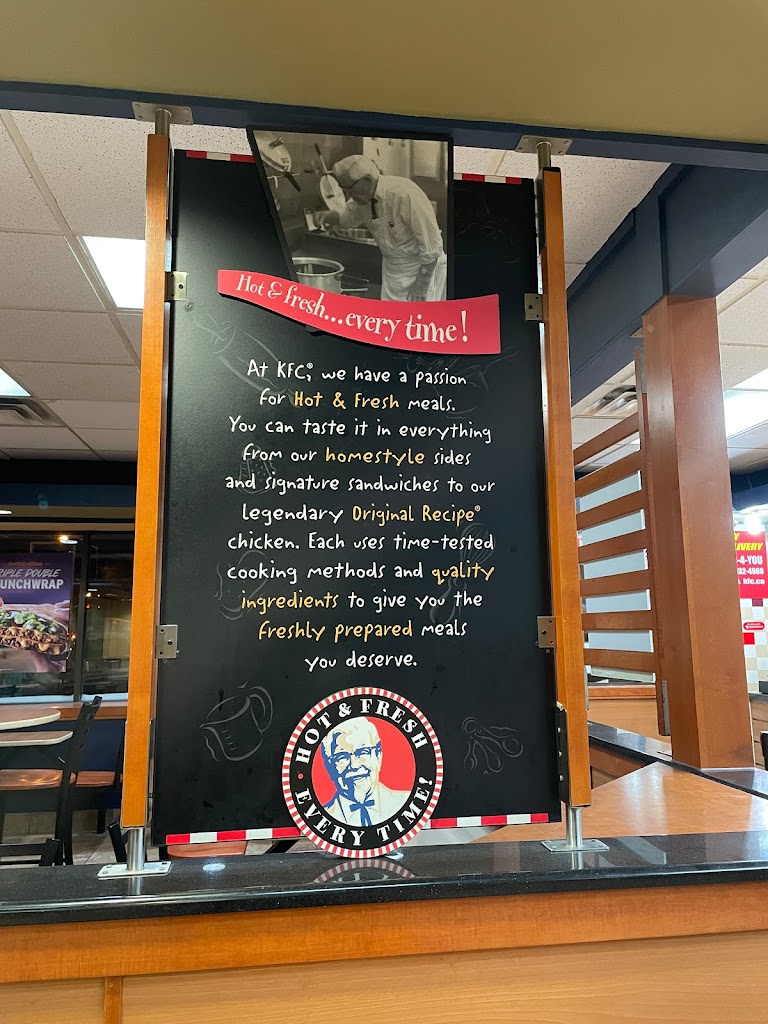 Hot & fresh...every time!
At KFC®, we have a passion
for Hot & Fresh meals.
You can taste it in everything
from our homestyle sides
and signature sandwiches to our
legendary Original Recipe®
chicken. Each uses time-tested
cooking methods and quality
ingredients to give you the
freshly prepared meals
you deserve.
HOT & FRESH
EVERY TIME!
TRIPLE DOUBLE
UNCHWRAP
-4-YOU
32-4968
kfc.ca